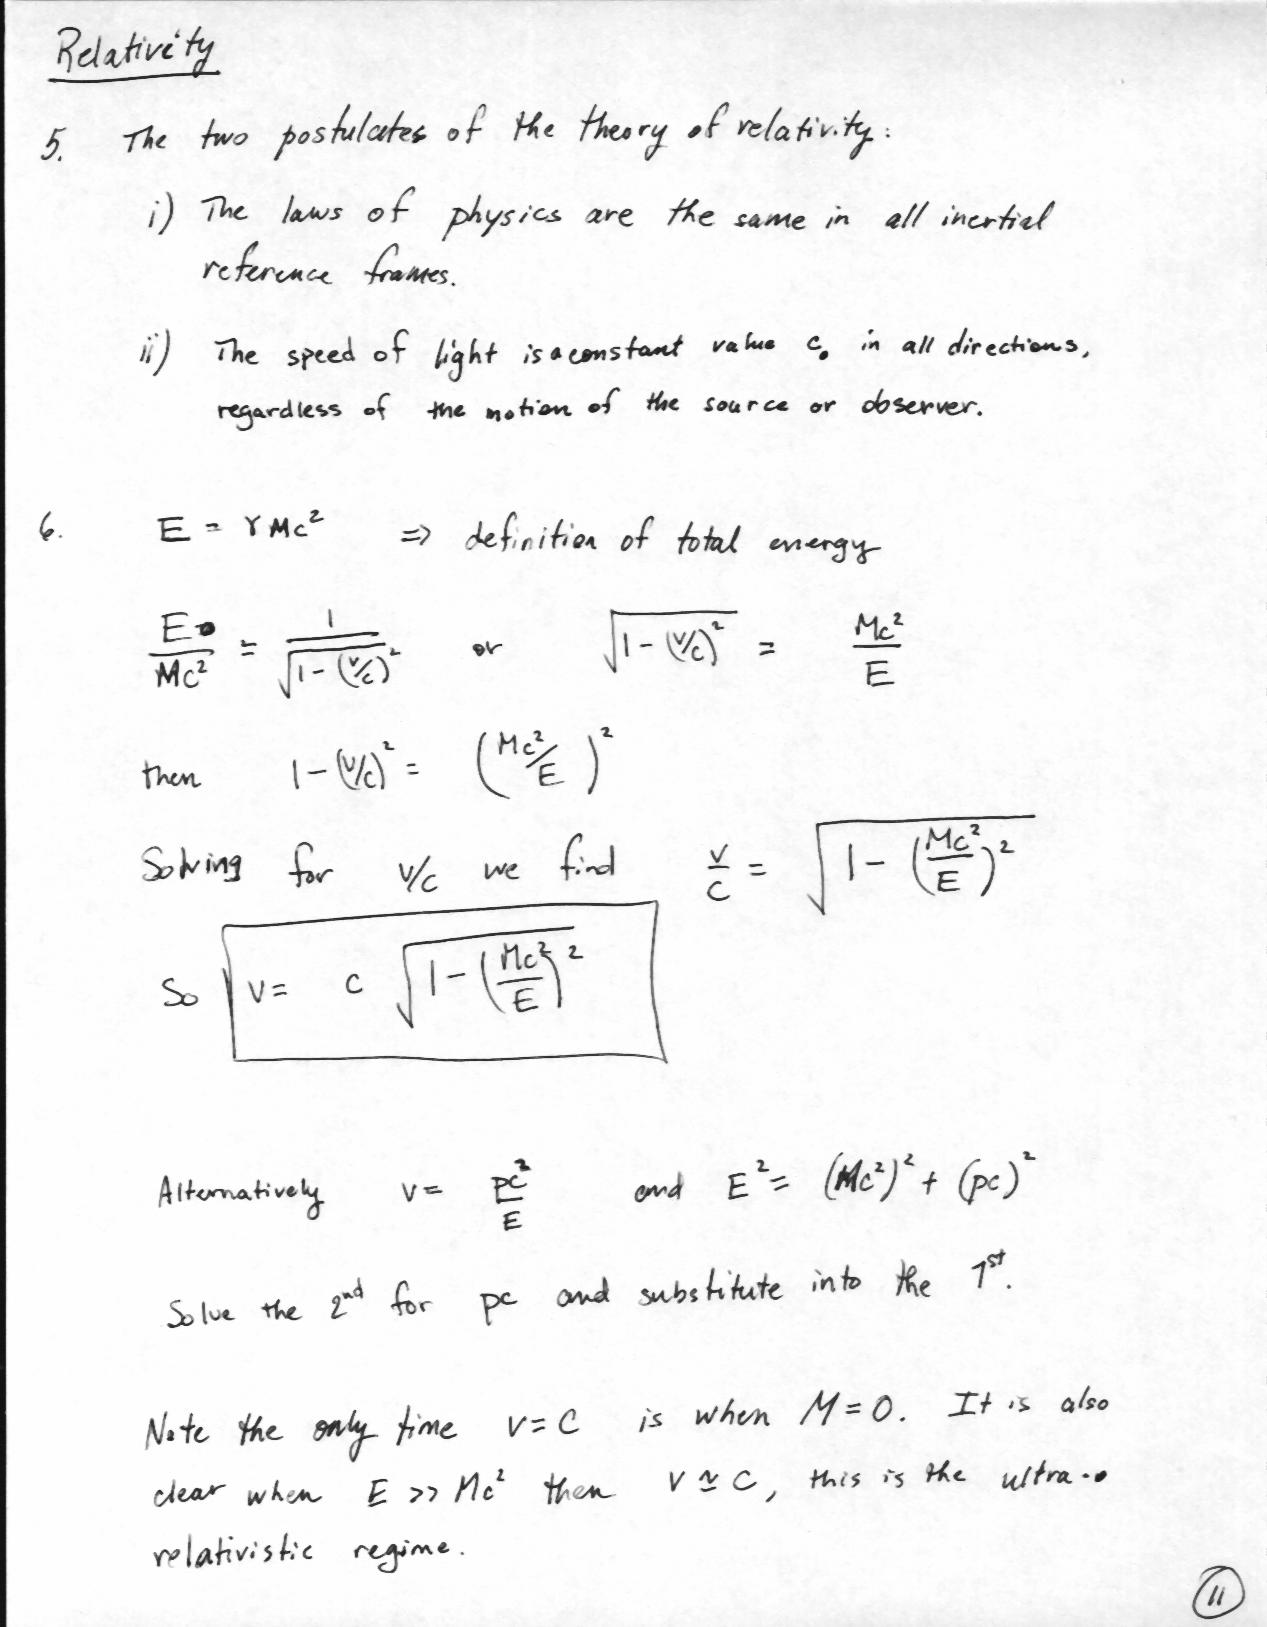 Relativity
5. The two postulates of the theory of relativity:
i) The laws of physics are the same in all inertial
reference frames.
ii) The speed of light is a constant value c₀ in all directions,
regardless of the motion of the source or observer.
6. E = γMc² ⇒ definition of total energy
E/Mc² = 1/√(1-(v/c)²) or √(1-(v/c)²) = Mc²/E
then 1-(v/c)² = (Mc²/E)²
Solving for v/c we find v/c = √(1-(Mc²/E)²)
So v = c √(1-(Mc²/E)²)
Alternatively v = pc²/E and E² = (Mc²)² + (pc)²
Solve the 2nd for pc and substitute into the 1st.
Note the only time v=c is when M=0. It is also
clear when E >> Mc² then v ≃ c, this is the ultra-
relativistic regime.
11